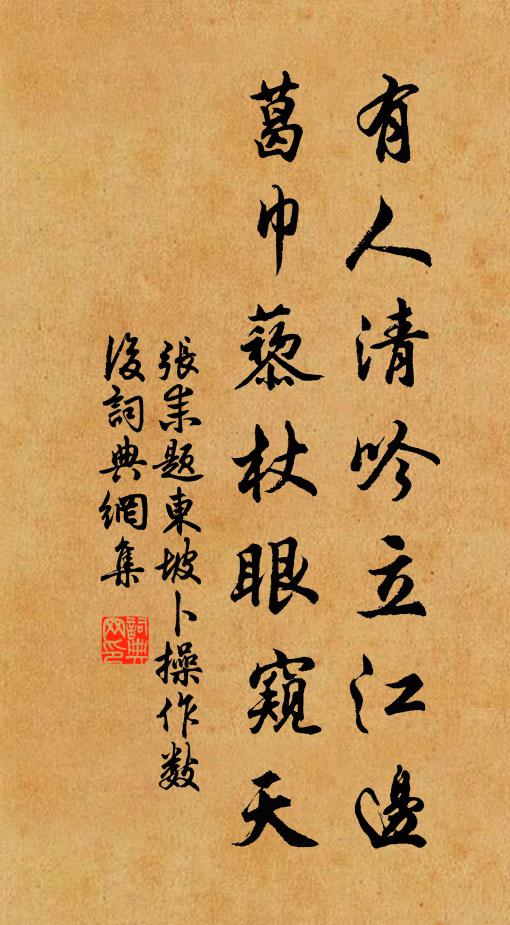 有人清吟立江邊
葛巾藜杖眼窺天
張耒題東坡卜操作數
後詞典網集
詞典網印